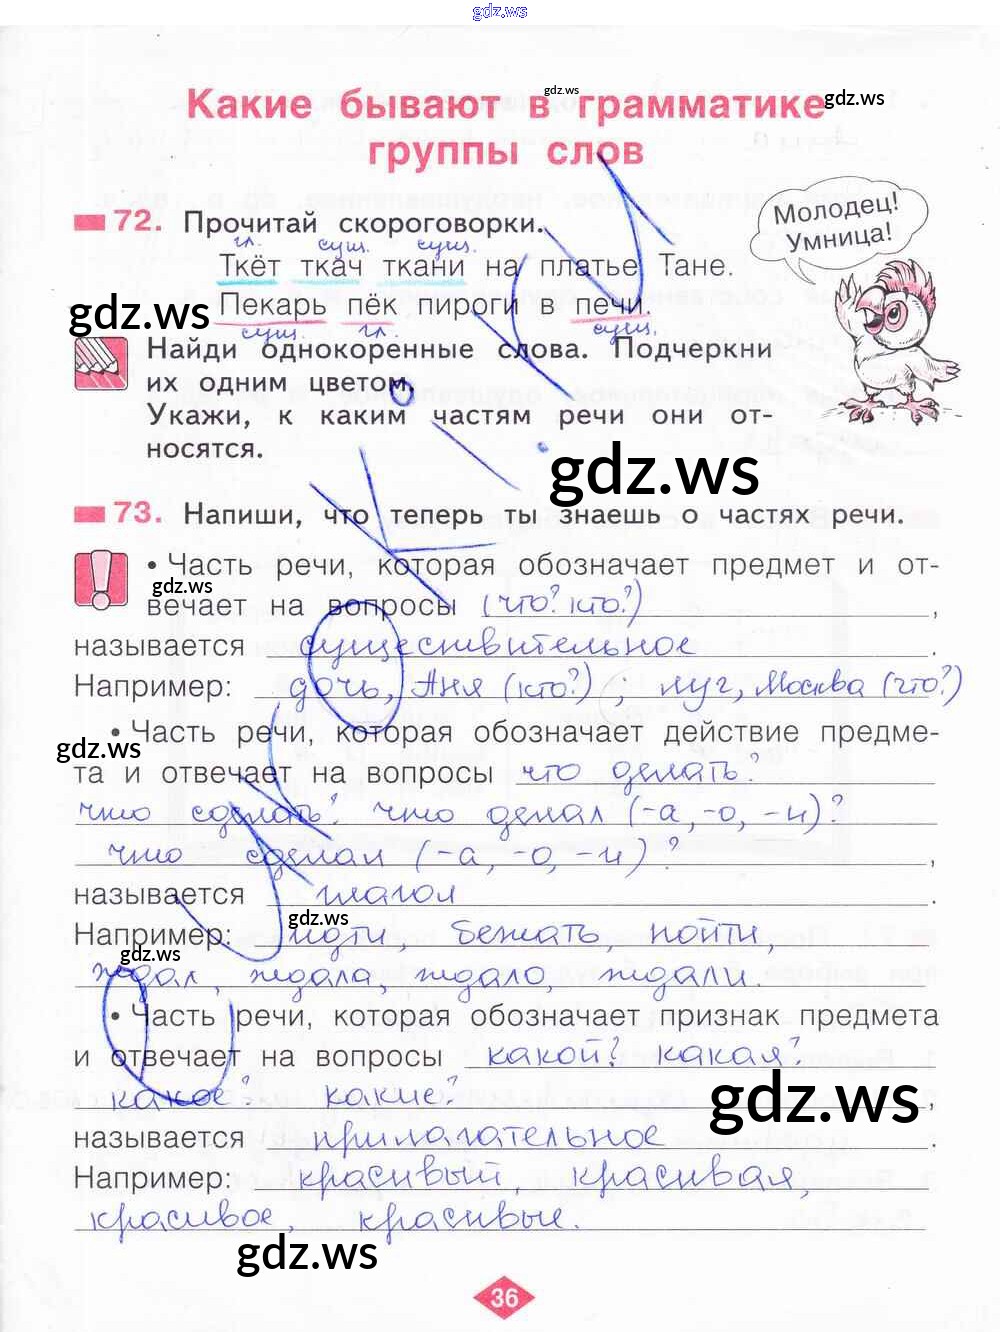 gdz.ws
Какие бывают в грамматике
gdz.ws
gdz.ws
группы слов
Молодец!
Умница!
72. Прочитай скороговорки.
гл. сущ. сущ.
Ткёт ткач ткани на платье Тане.
Пекарь пёк пироги в печи.
gdz.ws
сущ. гл. сущ.
Найди однокоренные слова. Подчеркни
их одним цветом.
Укажи, к каким частям речи они от-
носятся.
gdz.ws
73. Напиши, что теперь ты знаешь о частях речи.
• Часть речи, которая обозначает предмет и от-
gdz.ws
вечает на вопросы (что? кто?) ,
называется существительное .
Например: дочь, Аня (кто?) ; луг, Москва (что?)
• Часть речи, которая обозначает действие предме-
gdz.ws
та и отвечает на вопросы что делать?
что сделать? что делал (-а, -о, -и)?
что сделал (-а, -о, -и) ? ,
называется глагол .
gdz.ws
Например: идти, бежать, пойти,
gdz.ws
ждал, ждала, ждало, ждали.
• Часть речи, которая обозначает признак предмета
и отвечает на вопросы какой? какая?
gdz.ws
какое? какие? ,
называется прилагательное .
Например: красивый, красивая,
красивое, красивые.
gdz.ws
36